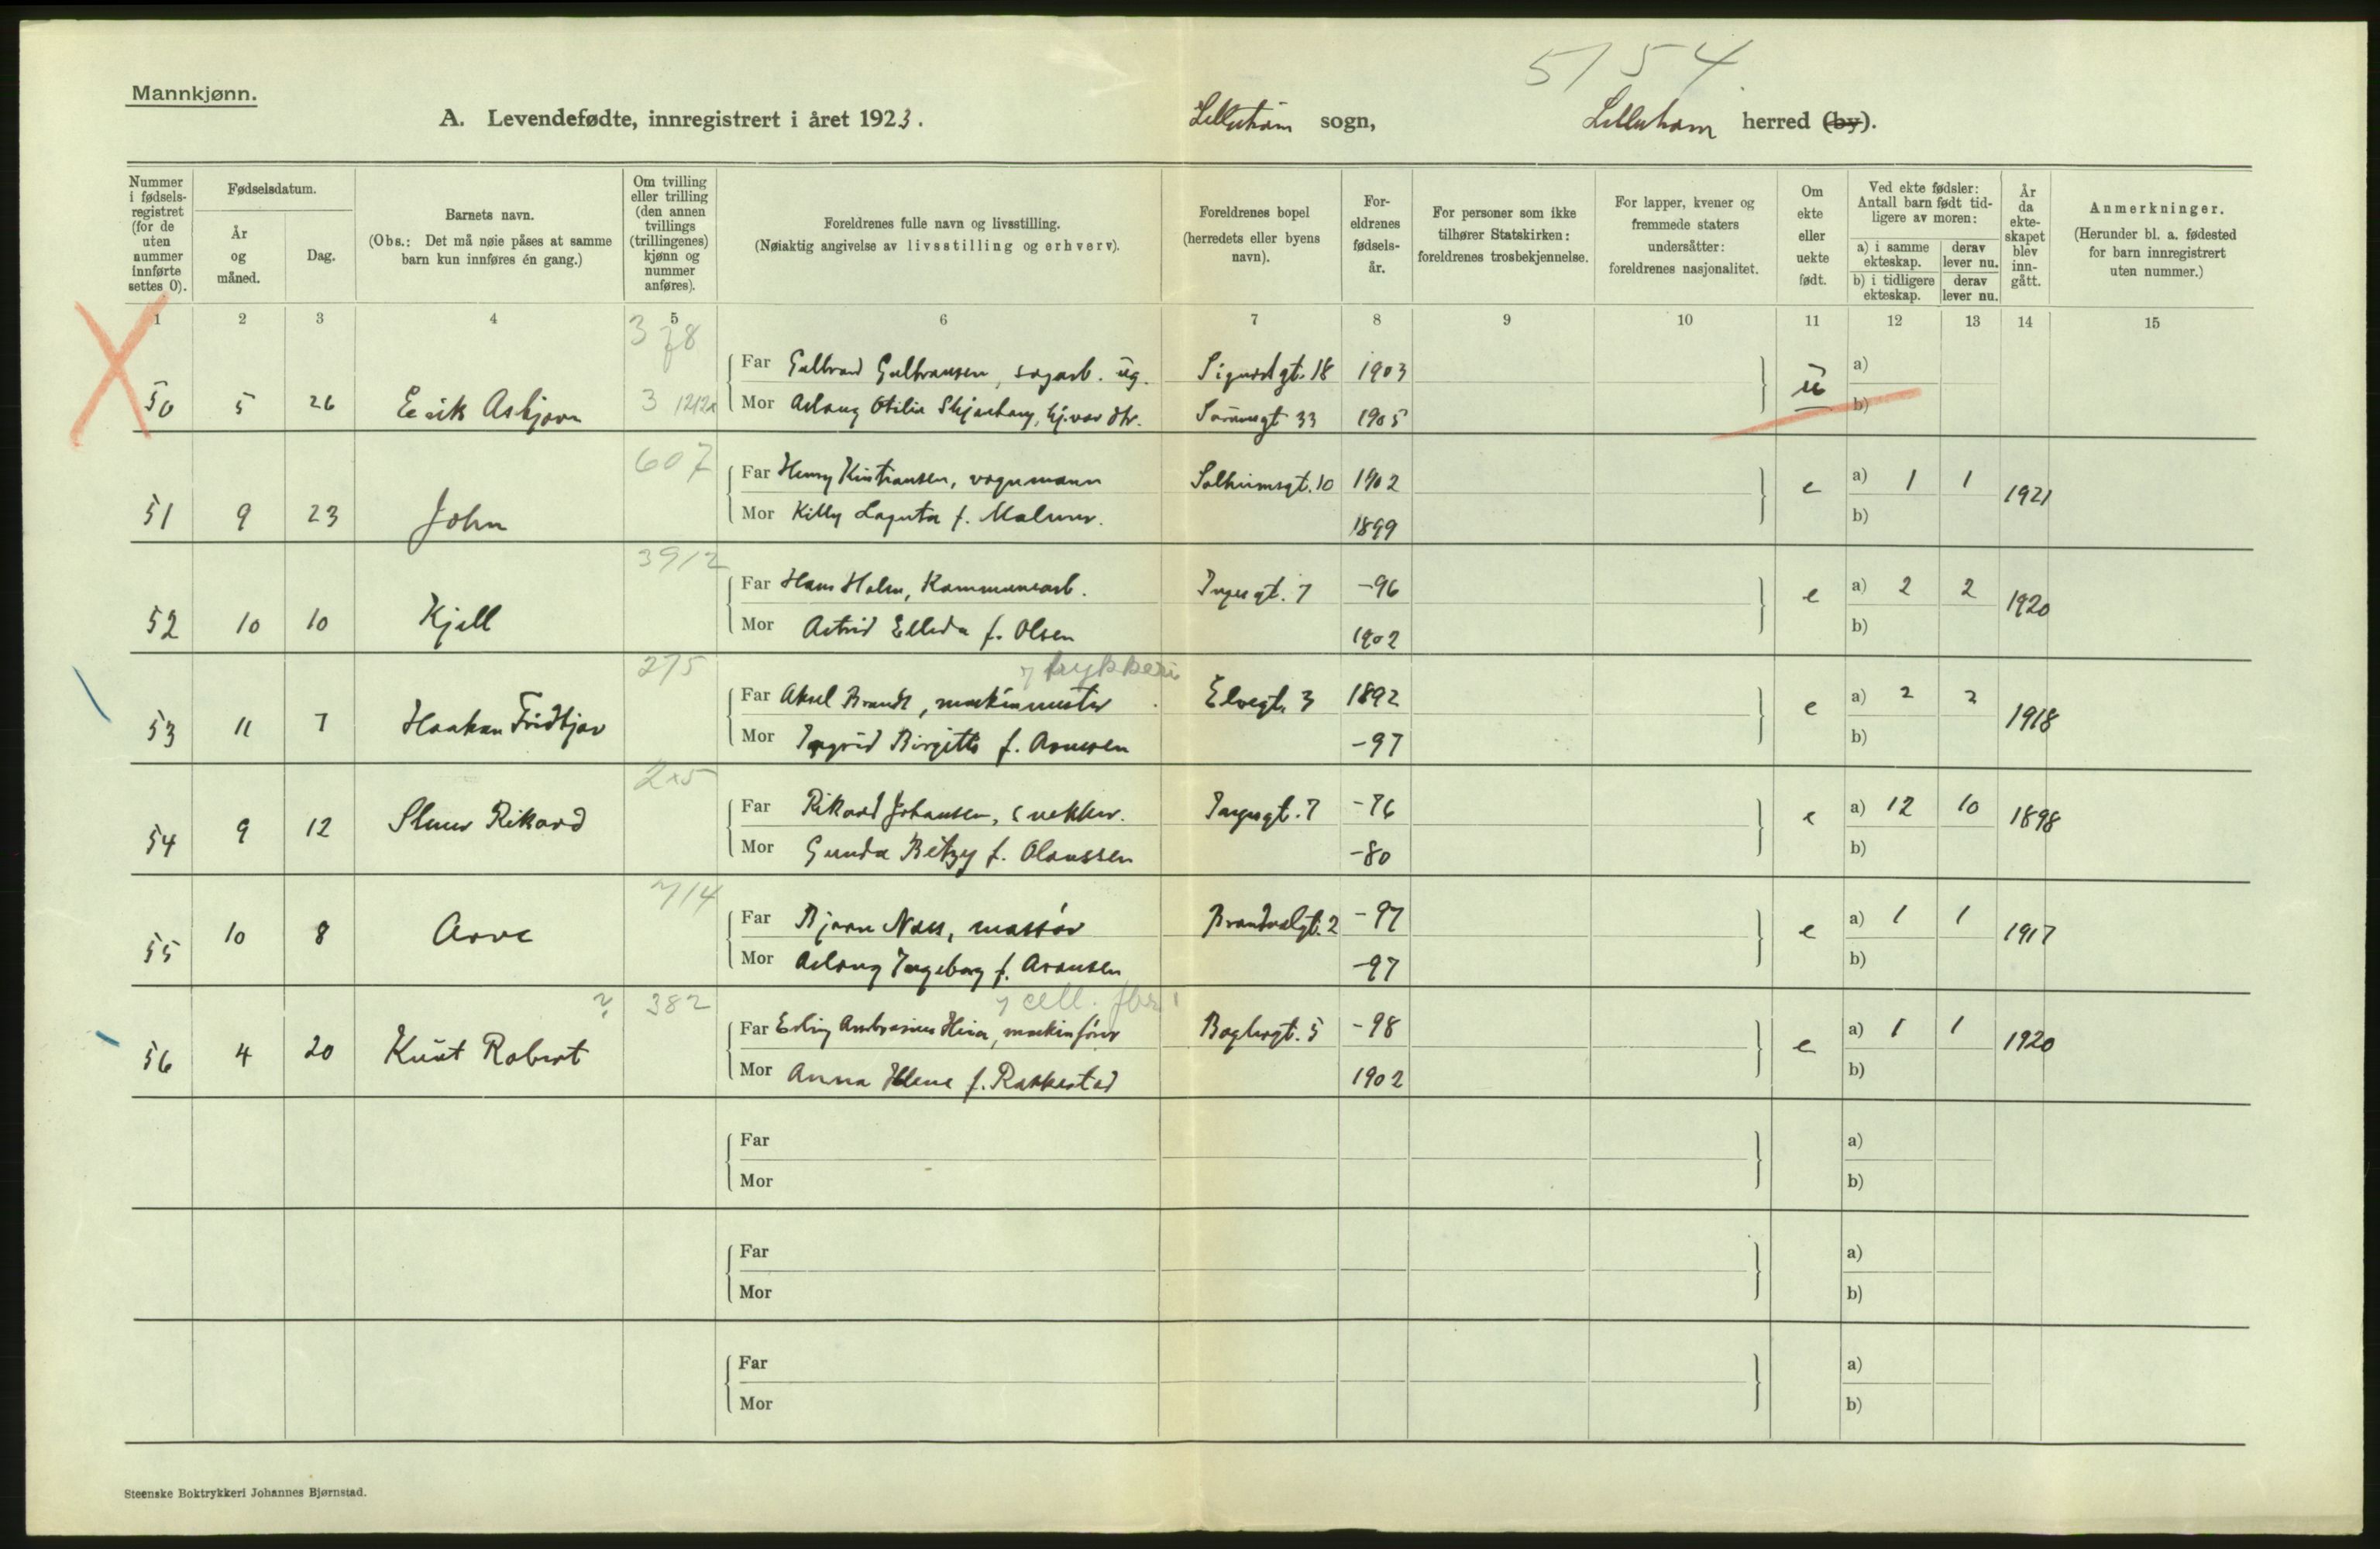 5154
Mannkjønn.
A. Levendefødte, innregistrert i året 1923.
sogn,
herred (by).
Nummer i fødselsregistret (for de uten nummer innførte settes 0).
Fødselsdatum.
År og måned.
Dag.
Barnets navn.
(Obs.: Det må nøie påses at samme barn kun innføres én gang.)
Om tvilling eller trilling (den annen tvillings (trillingenes) kjønn og nummer anføres).
Foreldrenes fulle navn og livsstilling.
(Nøiaktig angivelse av livsstilling og erhverv).
Foreldrenes bopel (herredets eller byens navn).
Foreldrenes fødselsår.
For personer som ikke tilhører Statskirken: foreldrenes trosbekjennelse.
For lapper, kvener og fremmede staters undersåtter: foreldrenes nasjonalitet.
Om ekte eller uekte født.
Ved ekte fødsler: Antall barn født tidligere av moren:
a) i samme ekteskap.
derav lever nu.
b) i tidligere ekteskap.
derav lever nu.
År da ekteskapet blev inngått.
Anmerkninger.
(Herunder bl. a. fødested for barn innregistrert uten nummer.)
1 2 3 4 5 6 7 8 9 10 11 12 13 14 15
Far Gulbrand Gulbransen, sagarb. ug. Sigurdgt. 18 1903 a)
50 5 26 Erik Asbjørn Mor Aslaug Otilie 33 1905 u b)
607
Far Henry Kristiansen, vognmann Solheimsgt. 10 1902 e a) 1 1 1921
51 9 23 John Mor 1899 b)
Far Hans Holm, Kommunearb. Ingesgt. 7 -96 e a) 2 2 1920
52 10 10 Kjell Mor Astrid Elleda f. Olsen 1902 b)
275
trykkeri
Far Aksel Brandt, maskinmester Elvegt. 3 1892 e a) 2 2 1918
53 11 7 Haakon Fridtjov Mor Ingrid Birgitte f. Arnesen -97 b)
Far Rikard Johansen, snekker. Ingesgt. 7 -76 e a) 12 10 1898
54 9 12 Rikard Mor Gunda Betzy f. Olaussen -80 b)
714
Far Bjarne Næss, massør 2 -97 e a) 1 1 1917
55 10 8 Arve Mor Aslaug Ingeborg f. Aronsen -97 b)
382
cell. fbr.
Far Erling Ambrosius maskinfører Baglergt. 5 -98 e a) 1 1 1920
56 4 20 Knut Robert Mor Anna Helene f. Rakkestad 1902 b)
Far a)
Mor b)
Far a)
Mor b)
Far a)
Mor b)
Steenske Boktrykkeri Johannes Bjørnstad.